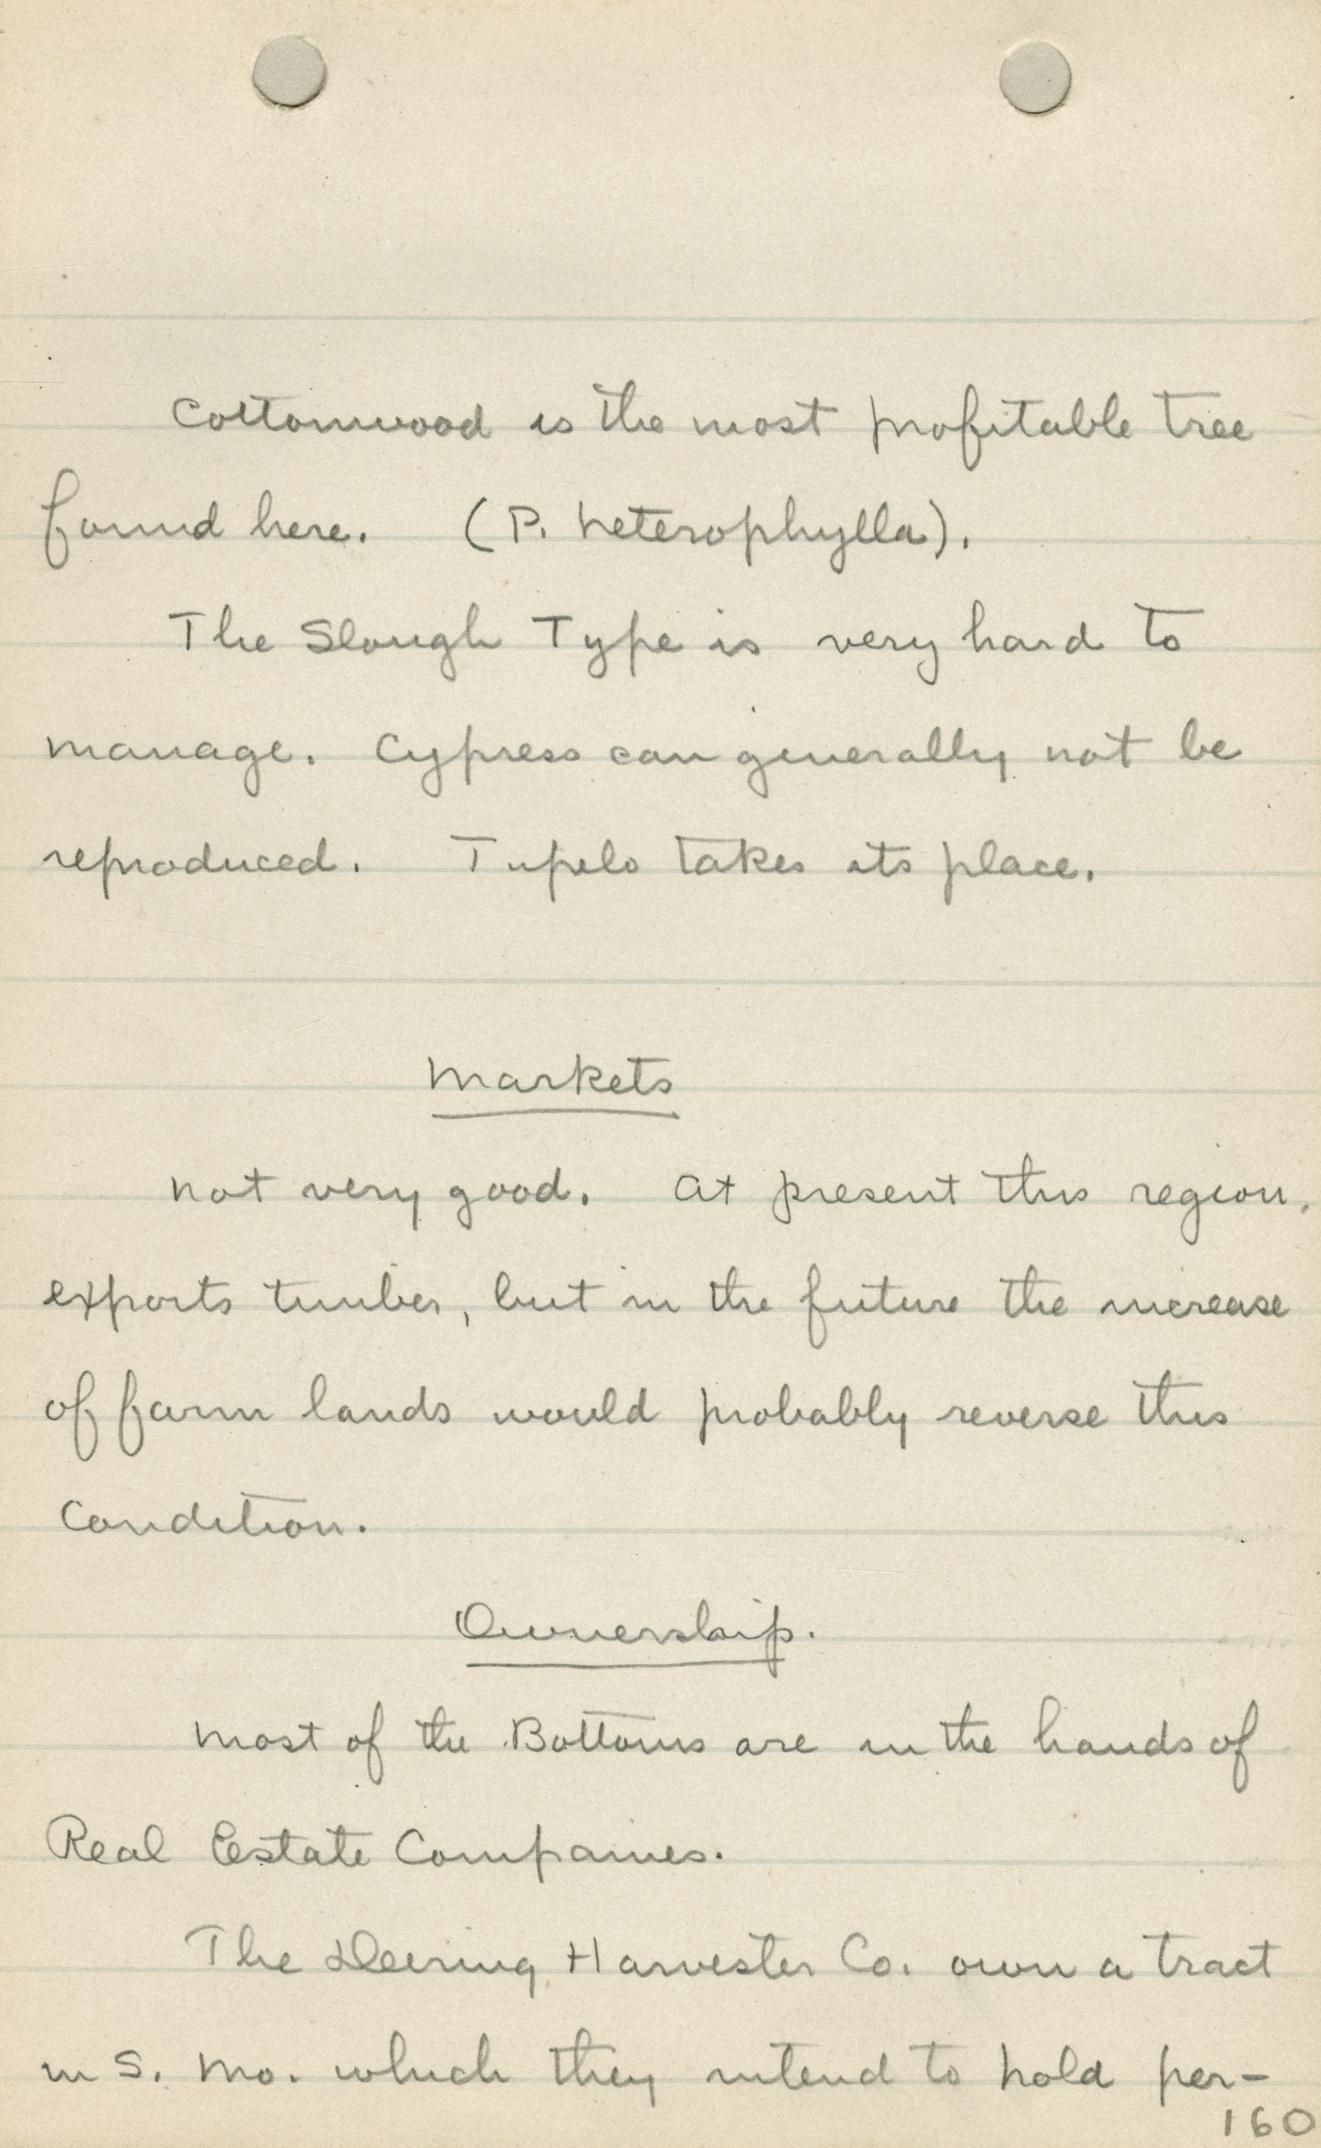 Cottonwood is the most profitable tree
found here. (P. heterophylla).
The Slough Type is very hard to
manage. Cypress can generally not be
reproduced. Tupelo takes its place.
Markets
Not very good. At present this region.
exports timber, but in the future the increase
of farm lands would probably reverse this
Condition.
Ownership.
Most of the Bottoms are in the hands of
Real Estate Companies.
The Deering Harvester Co. own a tract
in S. Mo. which they intend to hold per-
160